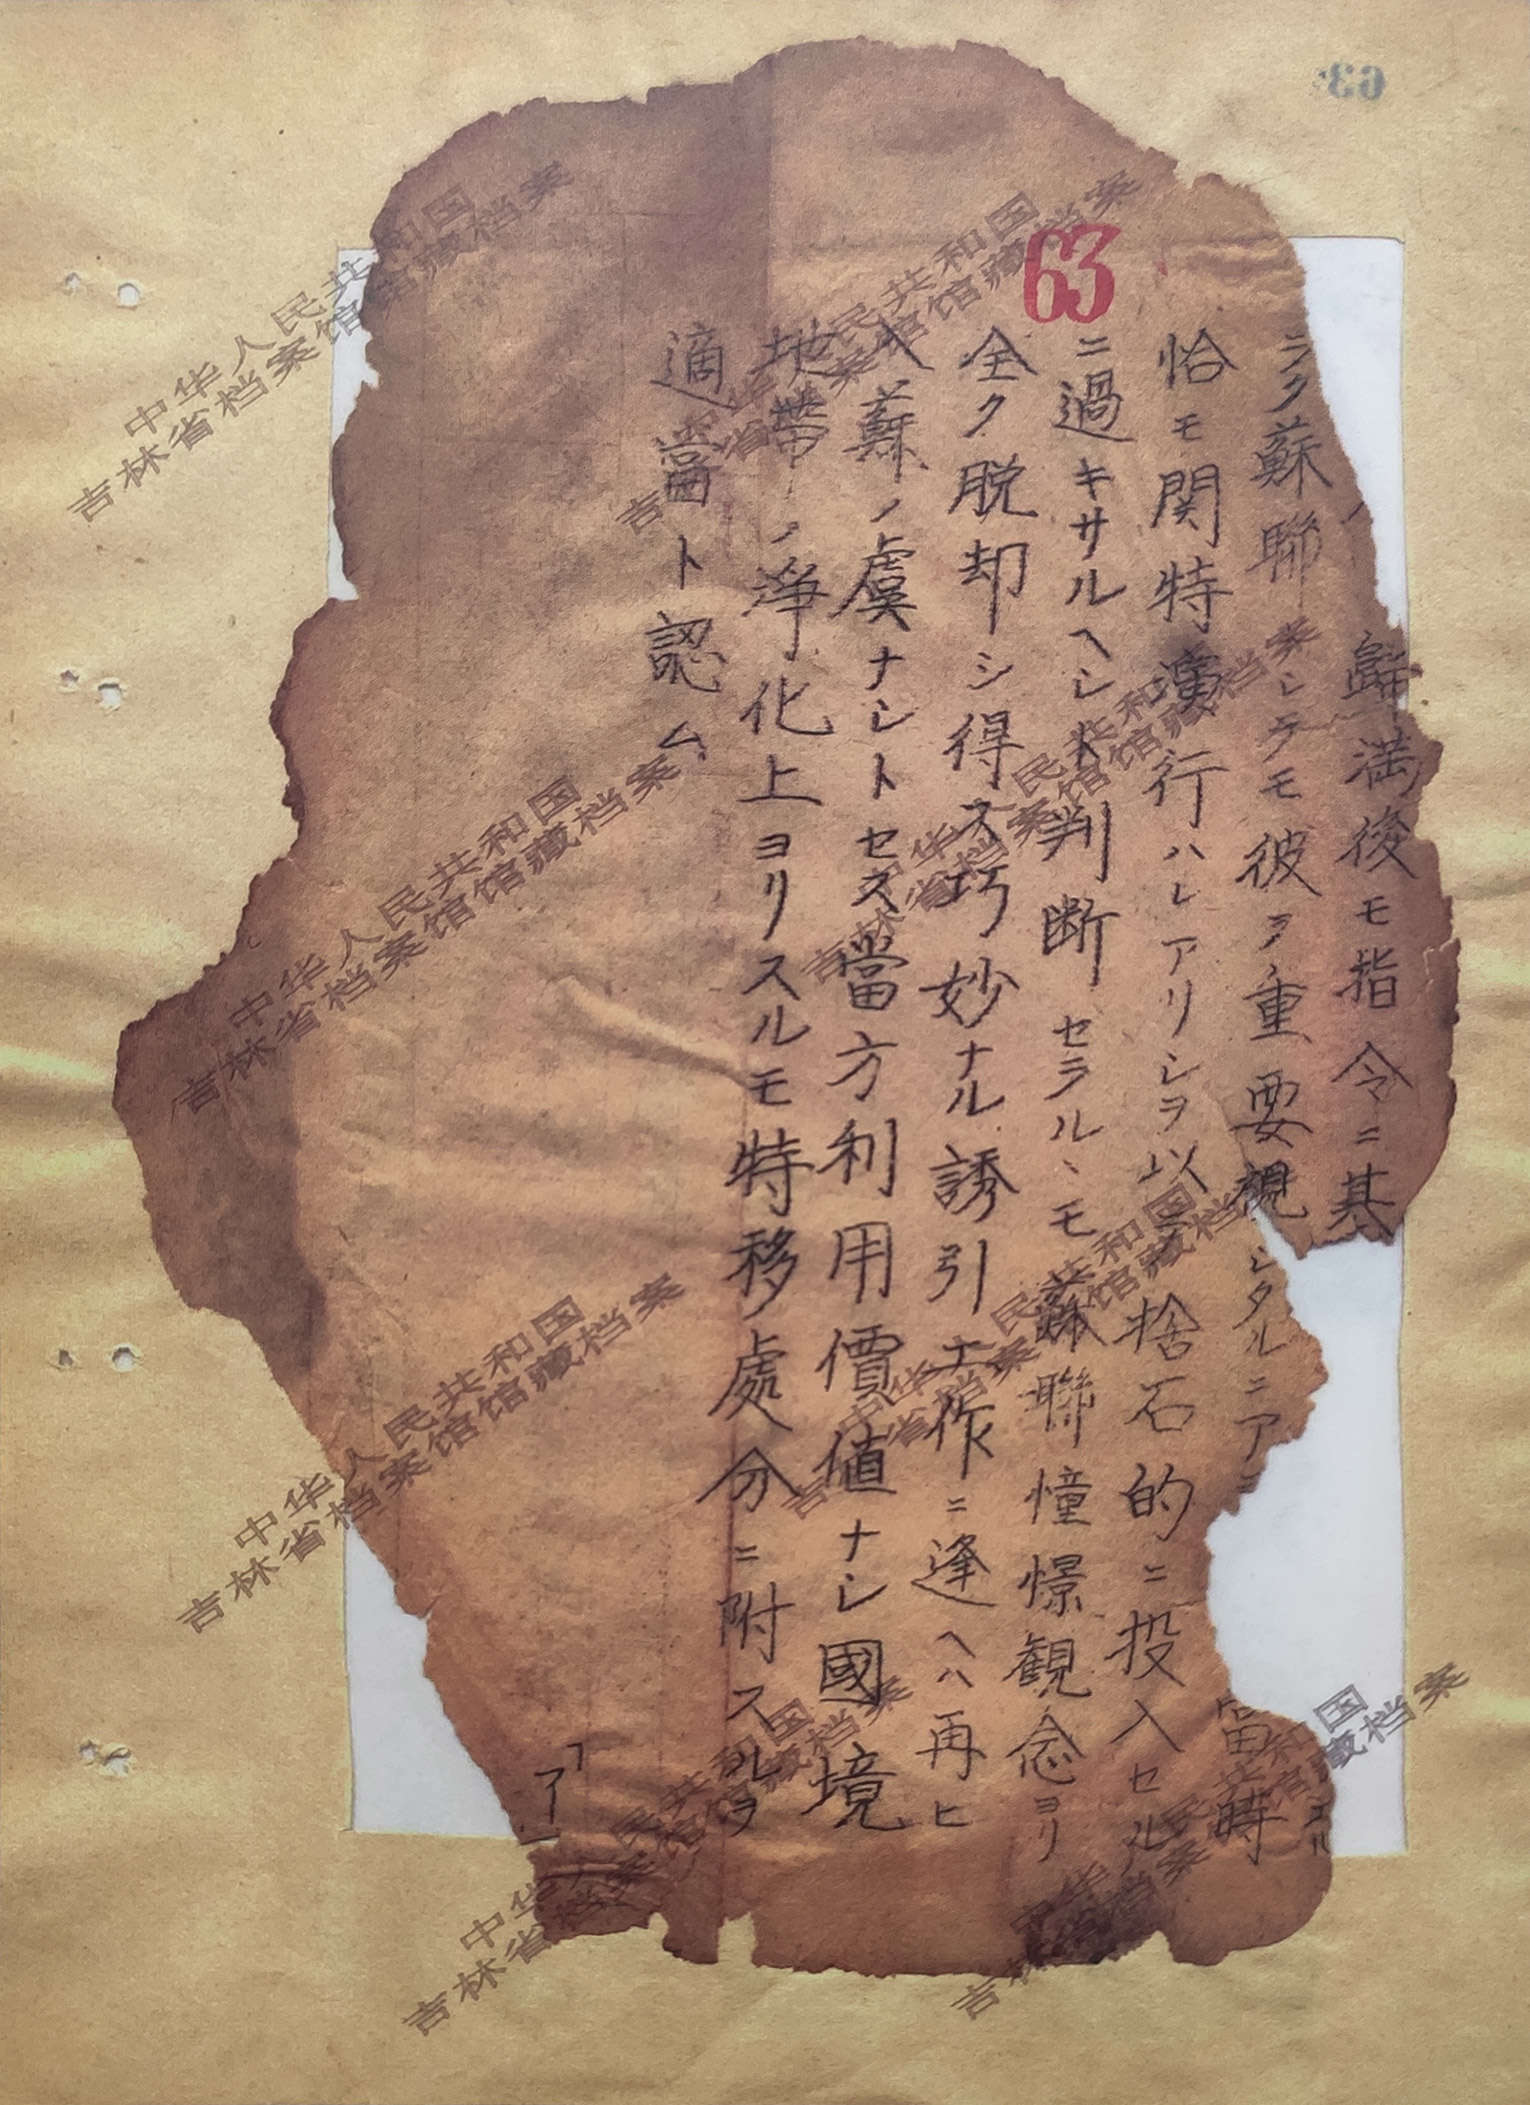 63
63
歸満後モ指令ニ基
ニラク蘇聯シテモ彼ヲ重要視シタルニア
恰モ関特演行ハレアリシヲ以テ捨石的ニ投入セル
當時
ニ過キサルヘシト判断セラルヽモ蘇聯憧憬観念ヨリ
全ク脱却シ得ス巧妙ナル誘引工作ニ逢ヘハ再ヒ
入蘇ノ虞ナシトセス當方利用價値ナシ國境
地帯ノ淨化上ヨリスルモ特移處分ニ附スルヲ
適當ト認ム
「ア」
中华人民共和国
吉林省档案馆馆藏档案
中华人民共和国
吉林省档案馆馆藏档案
中华人民共和国
吉林省档案馆馆藏档案
中华人民共和国
吉林省档案馆馆藏档案
中华人民共和国
吉林省档案馆馆藏档案
中华人民共和国
吉林省档案馆馆藏档案
中华人民共和国
吉林省档案馆馆藏档案
中华人民共和国
吉林省档案馆馆藏档案